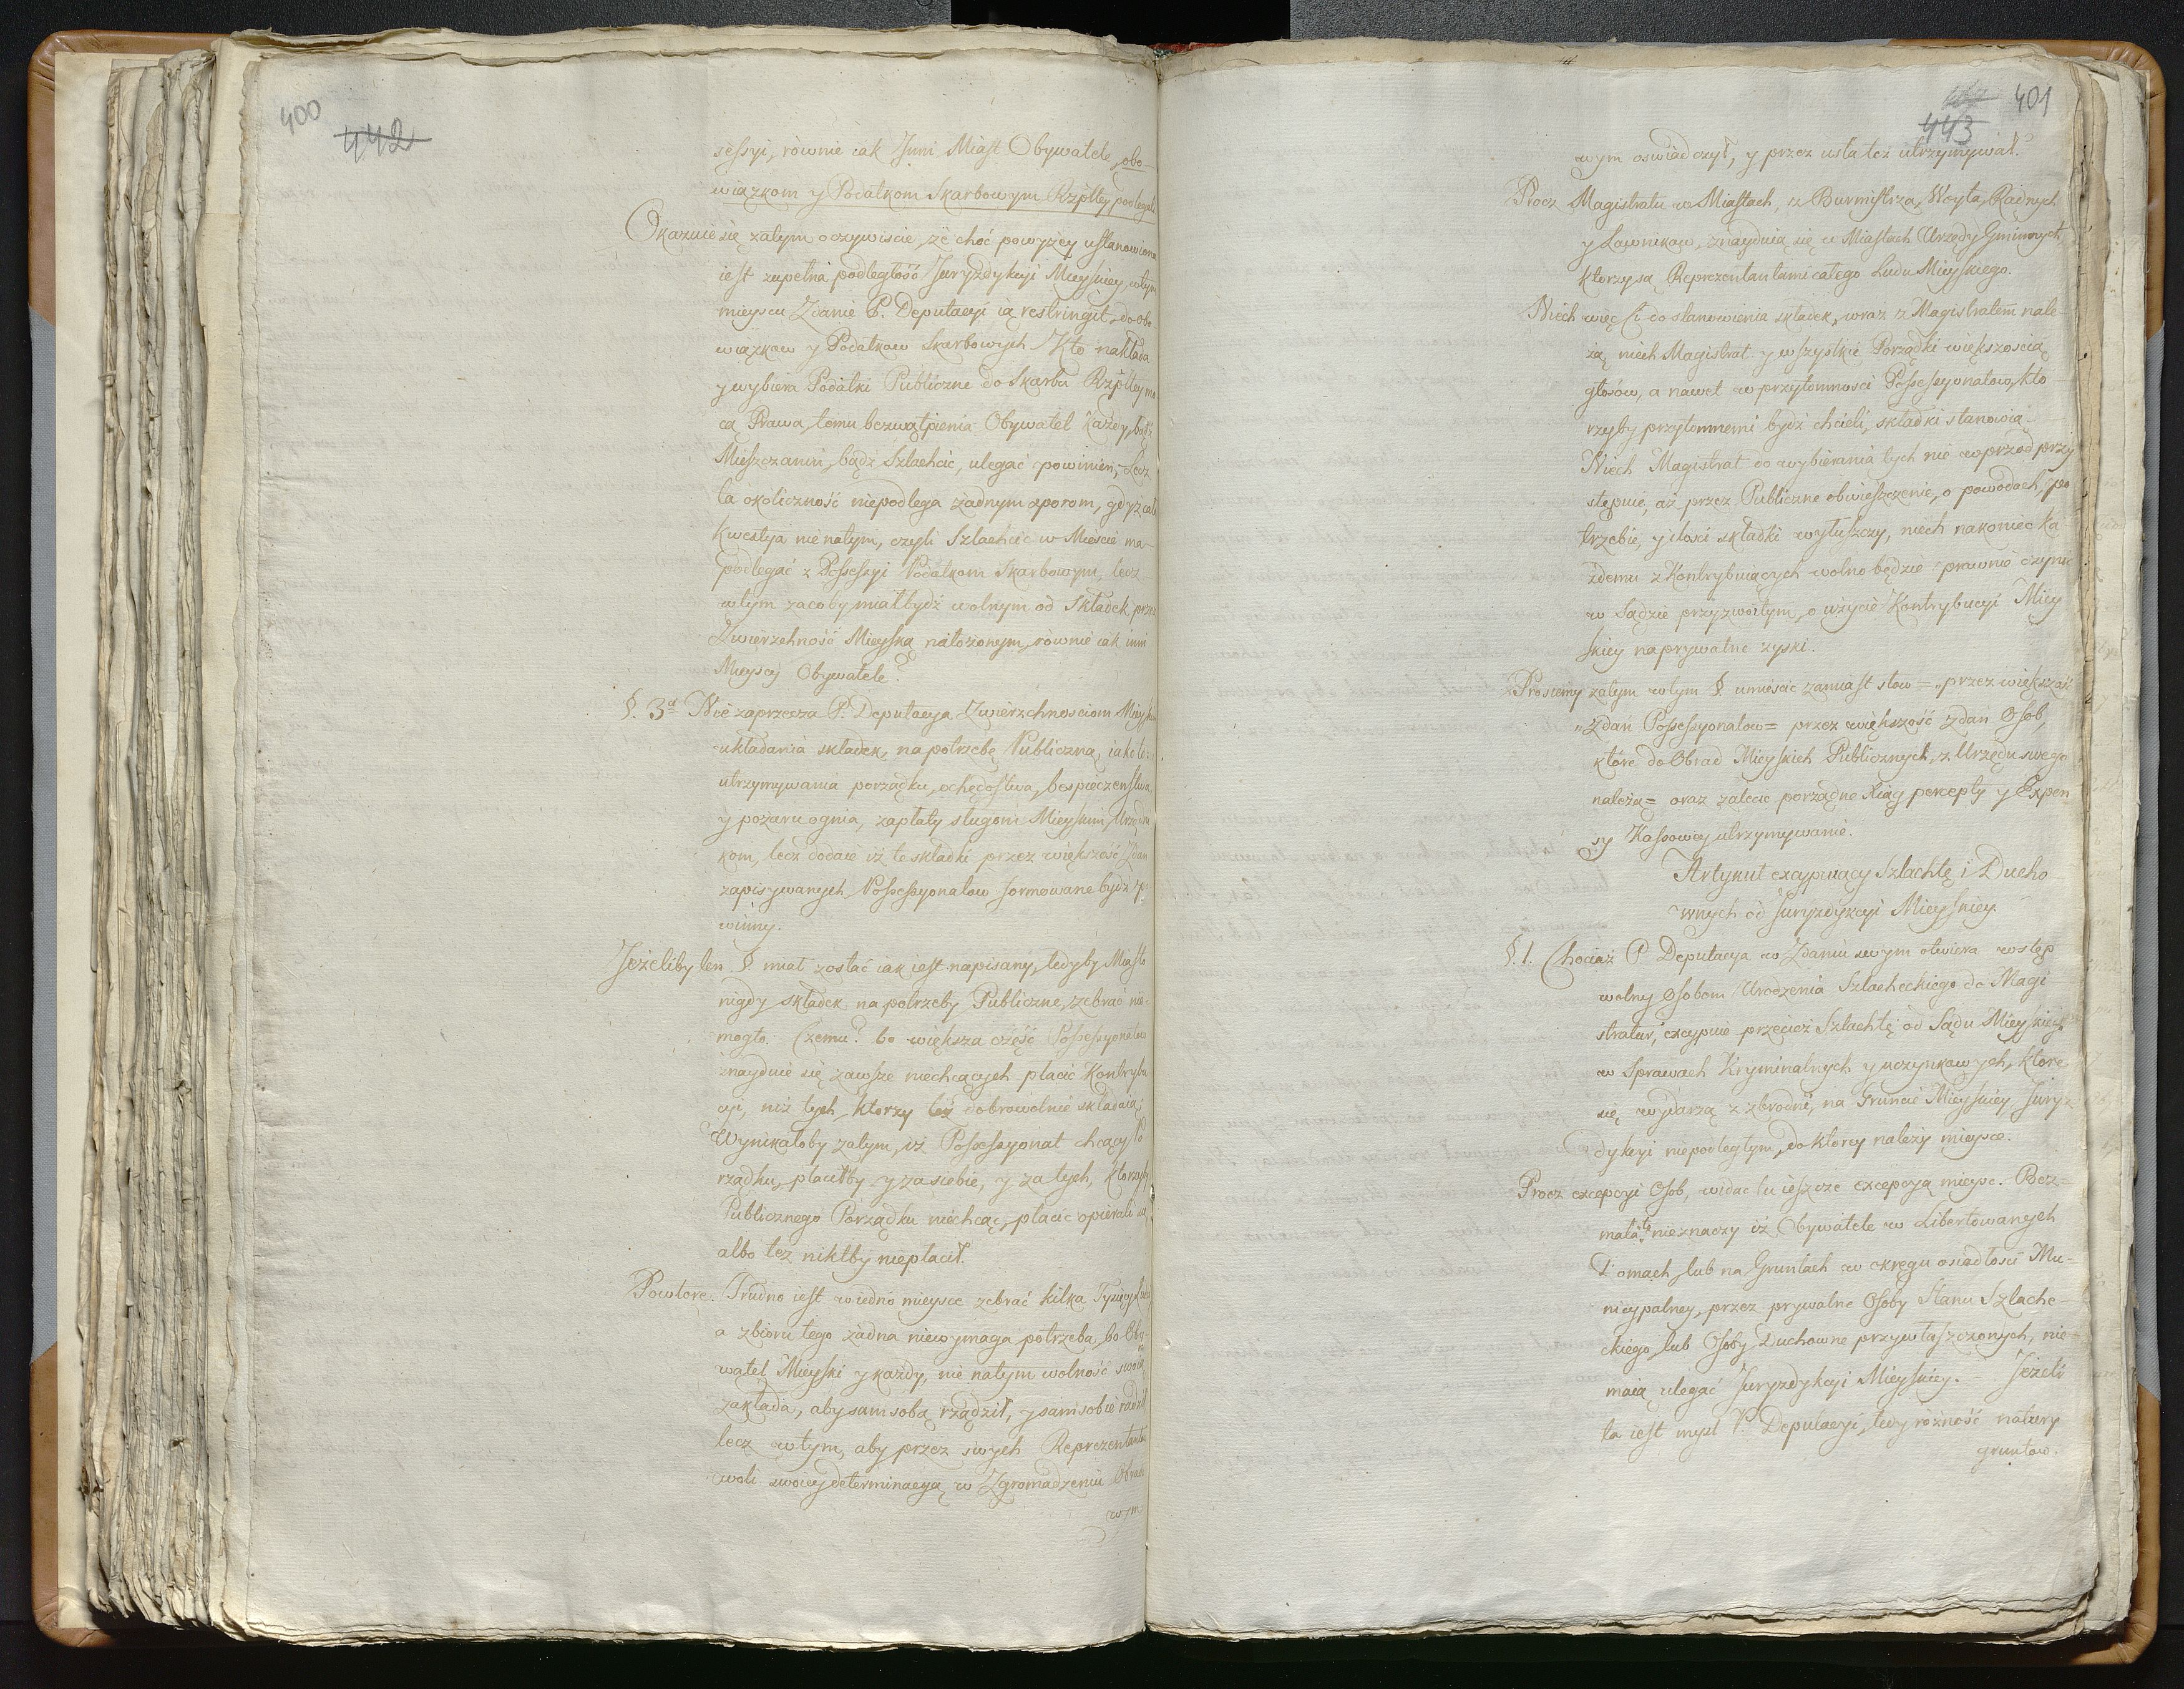 400
442
seſsyi, rownie iak Jnni Miaſt Obywatele, obo-
wiązkom y Podatkom Skarbowym Rzpltey podlegali
Okazuie się zatym oczywiscie, że choć powyżey uſtanowiona
ieſt zupełna podległość Juryzdykcyi Mieyſkiey, wtym
mieyscu Zdanie P. Deputacyi ią restringit, do obo-
wiązkow y Podatkow Skarbowych. Kto nakłada
y wybiera Podatki Publiczne do Skarbu Rzpltey mo-
cą Prawa, temu bezwątpienia Obywatel Każdy, bądz
Mieszczanin, bądź Szlachcic, ulegać powinien; Lecz
ta okoliczność niepodlega żadnym sporom, gdyż cała
kwestya nie natym, czyli Szlachcic w Mieście ma
podlegać z Poſseſsyi Podatkom Skarbowym, lecz
wtym zacoby miał bydź wolnym od Składek przez
Zwierzchność Mieyſką nałożonym, rownie iak inni
Mieyscy Obywatele?
§. 3ª Nie zaprzecza P. Deputacya Zwierzchnosciom Mieyſkim
układania składek, na potrzebę Publiczną, iako to:
utrzymywania porządku, ochędoſtwa, bespieczenſtwa
y pożaru ognia, zapłaty sługom Mieyſkim, Urzędni
kom, lecz dodaie iż te składki przez większość Zdan
zapisywanych Poſseſsyonatow formowane bydź po-
winny.
Jeżeliby ten §. miał zostać iak ieſt napisany, tedyby Miaſto
nigdy składek na potrzeby Publiczne, zebrać nie
mogło. Czemu? bo większa część Poſseſsyonatow
znayduie się zawsze niechcących płacić Kontrybu
cyi, niż tych, ktorzy też dobrowolnie składaią;
Wynikałoby zatym, iż Poſseſsyonat chcący Po
rządku, płaciłby y za siebie, y za tych, ktorzyby
Publicznego Porządku niechcąc, płacić opierali się
albo też niktby niepłacił.
Powtore. Trudno ieſt w iedno mieysce zebrać kilka Tysięcy ludzi
a zbioru tego żadna niewymaga potrzeba, bo Oby-
watel Mieyſki y każdy, nie natym wolność swoią
zakłada, aby sam sobą rządził, y sam sobie radził
lecz wtym, aby przez swych Reprezentantow
woli swoiey determinacyą w Zgromadzeniu Obrado
wym
401
443
wym oswiadczył, y przez usta też utrzymywał.
Procz Magistratu w Miaſtach, z Burmiſtrza, Woyta, Radnych
y Ławnikow, znayduią się w Miaſtach Urzędy Gminnych
ktorzy są Reprezentantami całego Ludu Mieyſkiego.
Niech więc Ci do stanowienia składek, wraz z Magistratem nale
żą, niech Magistrat y wſzystkie Porządki większoscią
głosow, a nawet w przytomnosci Poſseſsyonatow, kto
rzyby przytomnemi bydź chcieli, składki stanowią
Niech Magistrat do wybierania tych nie wprzod przy
stępuie, aż przez Publiczne obwieſzczenie, o powodach, po
trzebie, y ilosci składki wytłuſzczy, niech nakoniec ka
żdemu z Kontrybuiących wolno będzie prawnie czynić
w Sądzie przyzwoitym, o użycie Kontrybucyi Miey
ſkiey na prywatne zyski.
Prosiemy zatym wtym §. umieścić zamiaſt słow = „przez większość
„Zdań Poſseſsyonatow = przez większość Zdań Osob,
które do Obrad Mieyſkich Publicznych, z Urzędu swego
należą = oraz zalecić porządne Xiąg percepty y Expen
sy Kaſsowey utrzymywanie.
Artykuł excypuiący Szlachtę i Ducho
wnych od Juryzdykcyi Mieyſkiey.
§. 1. Chociaż P. Deputacya w Zdaniu swym otwiera wstęp
wolny Osobom Urodzenia Szlacheckiego do Magi
stratur, excypuie przecież Szlachtę od Sądu Mieyſkiego
w Sprawach Kryminalnych y uczynkowych, ktore
się wydarzą z zbrodni, na Gruncie Mieyſkiey Jury-
dykcyi niepodległym, do ktorey należy mieysce.
Procz excepcyi Osob, widać tu ieſzcze excepcyą mieysc. Rez-
mata, nieznaczy iż Obywatele w Libertowanych
Domach, lub na Gruntach w okręgu osiadłości Mu-
nicypalney, przez prywatne Osoby Stanu Szlache-
ckiego, lub Osoby Duchowne przywłaſzczonych, nie
maią ulegać Juryzdykcyi Mieyſkiey. - Jeżeli
ta ieſt myśl P. Deputacyi, tedy różność natury
gruntow.